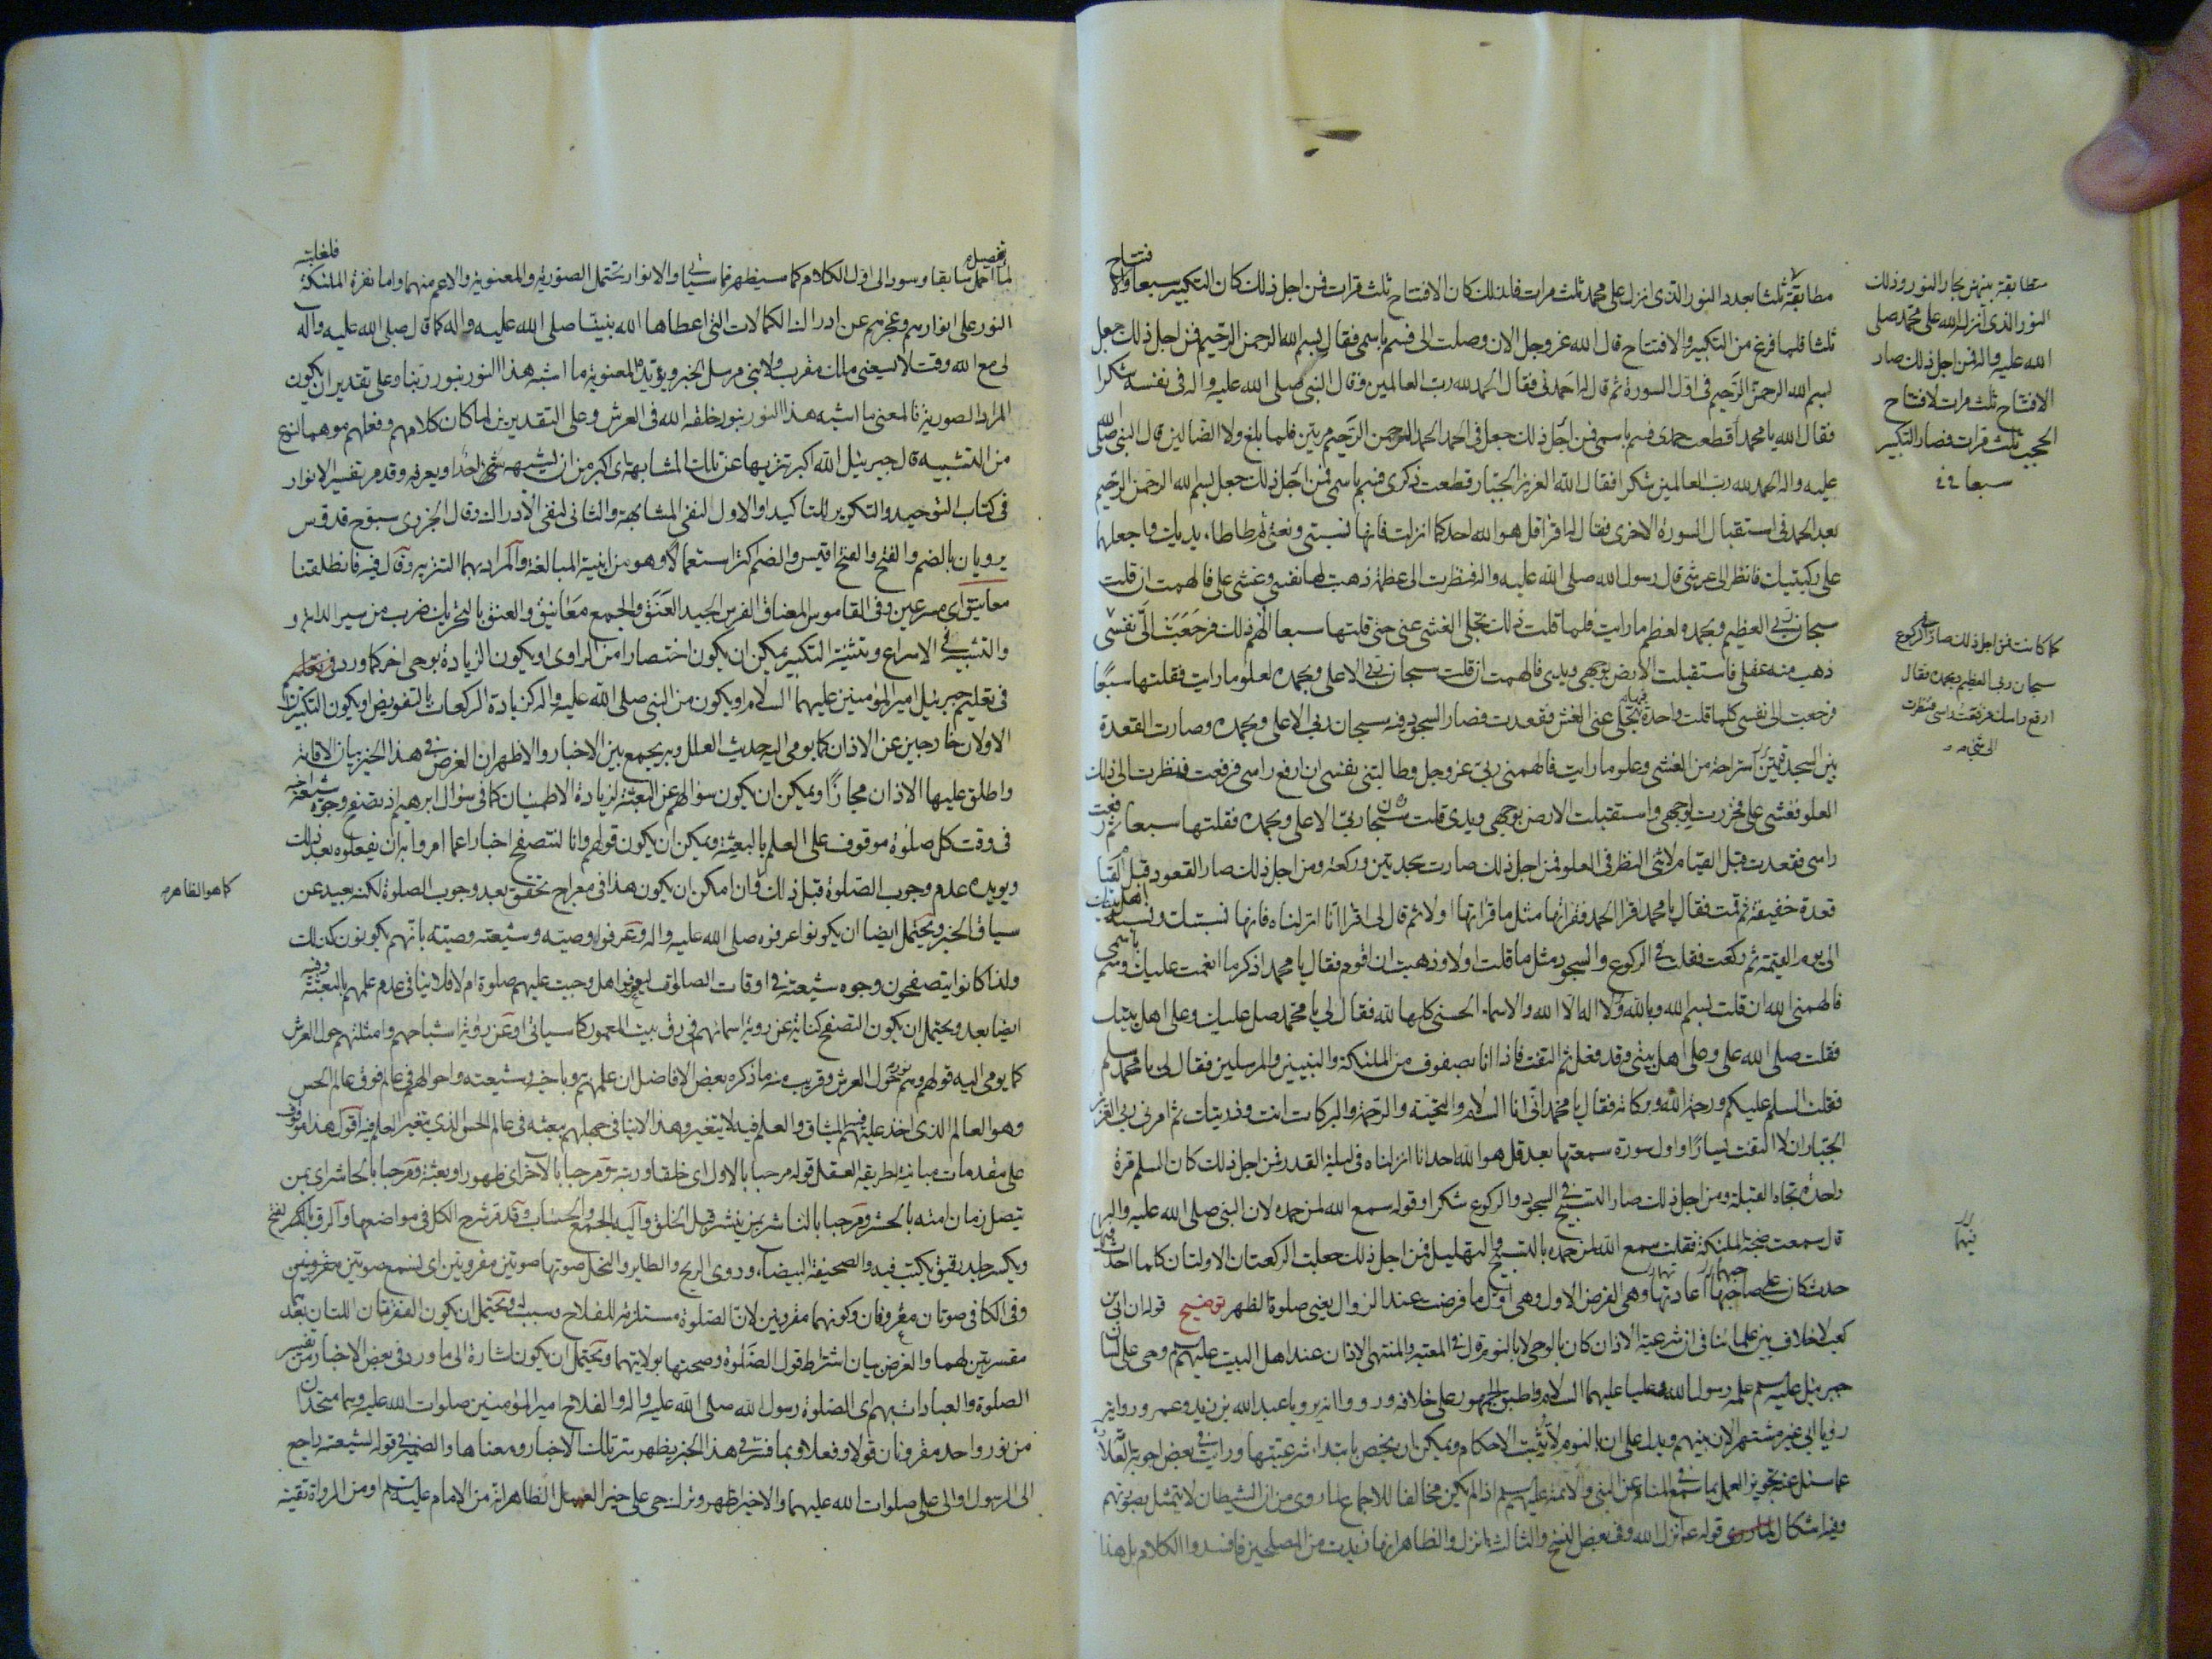 مطابقة ثلثا بعدد النور الذى انزل على محمد ثلث مرات فلذلك كان الافتتاح ثلث مرات فمن اجل ذلك كان التكبير سبعا والافتتاح
ثلثا فلما فرغ من التكبير والافتتاح قال الله عز وجل الان وصلت الى فسم باسمى فقال بسم الله الرحمن الرحيم فمن اجل ذلك جعل
بسم الله الرحمن الرحيم فى اول السورة ثم قال له احمدنى فقال الحمد لله رب العالمين وقال النبى صلى الله عليه واله فى نفسه شكرا
فقال الله يا محمد قطعت حمدى فسم باسمى فمن اجل ذلك جعل فى الحمد الرحمن الرحيم مرتين فلما بلغ ولا الضالين قال النبى صلى الله
عليه واله الحمد لله رب العالمين شكرا فقال الله العزيز الجبار قطعت ذكرى فسم باسمى فمن اجل ذلك جعل بسم الله الرحمن الرحيم
بعد الحمد فى استقبال السورة الاخرى فقال له اقرأ قل هو الله احد كما انزلت فانها نسبتى ونعتى ثم طاطا يديك واجعلهما
على ركبتيك فانظر الى عرشى قال رسول الله صلى الله عليه واله فنظرت الى عظمة ذهبت لها نفسى وغشى على فالهمت ان قلت
سبحان ربى العظيم وبحمده لعظم ما رايت فلما قلت ذلك تجلى الغشى عنى حتى قلتها سبعا الهم ذلك فرجعت الى نفسى
ذهب منه عقلى فاستقبلت الارض بوجهى ويدى فالهمت ان قلت سبحان ربى الاعلى وبحمده لعلو ما رايت فقلتها سبعا
فرجعت الى نفسى كلما قلت واحدة فيها تجلى عنى الغشى فقعدت فصار السجود فيه سبحان ربى الاعلى وبحمده وصارت القعدة
بين السجدتين استراحة من الغشى وعلو ما رايت فالهمنى ربى عز وجل وطالبتنى نفسى ان ارفع راسى فرفعت فنظرت الى ذلك
العلو فغشى على فخررت لوجهى واستقبلت الارض بوجهى ويدى قلت سبحان ربى الاعلى وبحمده فقلتها سبعا ثم رفعت
راسى فقعدت قبل القيام لاثنى النظر فى العلو فمن اجل ذلك صارت سجدتين وركعة ومن اجل ذلك صار القعود قبل القيام
قعدة خفيفة ثم قمت فقال يا محمد اقرا الحمد فقراتها مثل ما قراتها اولا ثم قال لى اقرا انا انزلناه فانها نسبتك ونسبة اهل بيتك
الى يوم القيمة ثم ركعت فقلت فى الركوع والسجود مثل ما قلت اولا وذهبت ان اقوم فقال يا محمد اذكر ما انعمت عليك وسم باسمى
فالهمنى الله ان قلت بسم الله وبالله ولا اله الا الله والاسماء الحسنى كلها لله فقال لى يا محمد صل عليك وعلى اهل بيتك
فقلت صلى الله على وعلى اهل بيتى وقد فعل ثم التفت فاذا انا بصفوف من الملئكة والنبيين والمرسلين فقال لى يا محمد سلم
فقلت السلم عليكم ورحمة الله وبركاته فقال يا محمد انى انا السلام والتحية والرحمة والبركات انت وذريتك ثم امرنى ربى العزيز
الجبار ان لا التفت يسارا واول سورة سمعتها بعد قل هو الله احد انا انزلناه فى ليلة القدر فمن اجل ذلك كان السلم مرة
واحدة تجاه القبلة ومن اجل ذلك صار التسبيح فى السجود والركوع شكرا وقوله سمع الله لمن حمده لان النبى صلى الله عليه واله
قال سمعت ضجة الملئكة فقلت سمع الله لمن حمده بالتسبيح والتهليل فمن اجل ذلك جعلت الركعتان الاولتان كلما احدث فيهما
حدث كان على صاحبهما اعادتهما وهى الفرض الاول وهى اول ما فرضت عند الزوال يعنى صلوة الظهر توضيح قوله ان ابى بن
كعب لا خلاف بين علمائنا فى ان شرعية الاذان كان بالوحى لا بالنوم قال فى المعتبر والمنتهى الاذان عند اهل البيت عليهم وحى على لسان
جبرئيل عليه سلم علمه رسول الله وعليا عليهما السلام واطبق الجمهور على خلافه ورووا انه برويا عبد الله بن زيد وعمر ورواية
رؤيا ابى غير مشتهر الان بينهم ويدل على ان بالنوم لا يثبت الاحكام ويمكن ان يخص بابتداء شرعيتها ورايت فى بعض اجوبة العلامة
عما سئل عنه تجويز العمل بما سمع فى المنام عن النبى والائمة عليهم سلم اذا لم يكن مخالفا للاجماع لما روى من ان الشيطان لا يتمثل بصورتهم
وفيه اشكال قوله عما نزل الله وفى بعض النسخ والثالث ما نزل والظاهر انها زيدت من المصلحين فافسدوا الكلام بل هذا
متطابقة بينهن بحار النور وذلك
النور الذى انزله الله على محمد صلى
الله عليه واله فمن اجل ذلك صار
الافتتاح ثلث مرات لافتتاح
الحجب ثلث مرات فصار التكبير
سبعا
كما كانت فمن اجل ذلك صار فى الركوع
سبحان ربى العظيم وبحمده فقال
ارفع راسك فرفعت راسى فنظرت
الى شئ
فيهما
لما اجمل سابقا وسورا الى اول الكلام كما سيظهر مما سياتى والانوار يشتمل الصورية والمعنوية والاعم منهما واما نفرة الملئكة فلغلبة
النور على انوارهم وعجزهم عن ادراك الكمالات التى اعطاها الله نبينا صلى الله عليه واله كما قال صلى الله عليه وآله
لى مع الله وقت لا يسعنى ملك مقرب ولا نبى مرسل الخبر ويؤيد المعنوية ما اشبه هذا النور بنور ربنا وعلى تقدير ان يكون
المراد الصورية فالمعنى ما اشبه هذا النور بنور خلقه الله فى العرش وعلى التقديرين لما كان كلامهم وفعلهم موهما لنوع
من التشبيه قال جبرئيل الله اكبر تنزيها عن تلك المشابهة اى اكبر من ان يشبهه شئ او يعرفه وقد مر تفسير الانوار
فى كتاب التوحيد والتكرير للتاكيد او الاول لنفى المشابهة والثانى لنفى الادراك وقال الجزرى سبوح قدوس
يرويان بالضم والفتح والفتح اقيس والضم اكثر استعمالا وهو من ابنية المبالغة والمراد بهما التنزيه وقال فيه فانطلقنا
معانيق اى مسرعين وفى القاموس المعناق الفرس الجيد العنق والجمع معانيق والعنق بالتحريك ضرب من سير الدابة و
والتشبيه فى الاسراع وتثنية التكبير يمكن ان يكون اختصارا من الراوى او يكون الزيادة بوحى اخر كما ورد
فى تعليم جبرئيل امير المؤمنين عليهما السلام او يكون من النبى صلى الله عليه واله كزيادة الركعات بالتفويض او يكون التكبيران
الاولان خارجين عن الاذان كما يومى اليه حديث العلل وبه يجمع بين الاخبار والاظهر ان الغرض فى هذا الخبر بيان الاقامة
واطلق عليها الاذان مجازا ويمكن ان يكون سؤالهم عن البعثة لزيادة الاطمينان كما فى سؤال ابرهيم اذ تصفح وجوه شيعة اخيه
فى وقت كل صلوة موقوف على العلم بالبعثة ويمكن ان يكون قولهم وانا لنتصفح اخبارا عما امروا به ان يفعلوه بعد ذلك
ويويده عدم وجوب الصلوة قبل ذلك وان امكن ان يكون هذا فى معراج تحقق بعد وجوب الصلوة لكنه بعيد عن
سياق الخبر ويحتمل ايضا ان يكونوا عرفوه صلى الله عليه واله وعرفوا وصيه وشيعته وصيته بانهم يكونون كذلك
ولذا كانوا يتصفحون وجوه شيعته فى اوقات الصلوات ليعرفوا هل وجبت عليهم صلوة ام لا فلا ينافى عدم علمهم بالبعثة وفيه
ايضا بعد ويحتمل ان يكون التصفح كناية عن روية اسمائهم فى رق بيت المعمور كما سياتى او عن روية اشباحهم وامثلتهم حول العرش
كما يومى اليه قولهم وهم نور حول العرش وقريب منه ما ذكره بعض الافاضل ان علمهم به وباخيه وشيعته واحوالهم فى عالم فوق عالم الحس
وهو العالم الذى اخذ عليهم فيه الميثاق والعلم فيه لا يتغير وهذا لا ينافى جهلهم ببعثه فى عالم الحس الذى يتغير العلم فيه اقول هذا موقوف
على مقدمات مباينة لطريقة العقل قوله مرحبا بالاول اى خلقا ورتبة ومرحبا بالآخر اى ظهورا وبعثة ومرحبا بالحاشر اى بمن
يتصل زمان امته بالحشر ومرحبا بالناشر اى بمن ينشر قبل الخلق واليه الجمع والحساب وقد مر شرح الكل فى مواضعها والرق بالفتح
ويكسر جلد رقيق يكتب فيه والصحيفة البيضاء، ودوى الريح والطاير والنحل صوتها صوتين مقرونين اى لسمع صوتين مقرونين
وفى الكافى صوتان مقرونان وكونهما مقرونين لان الصلوة مستلزم للفلاح وسبب له ويحتمل ان يكون الفقرتان اللتان بعد
مفسرتين لهما والغرض بيان اشتراط قبول الصلوة وصحتها بولايتهما ويحتمل ان يكون اشارة الى ما ورد فى بعض الاخبار من تفسير
الصلوة والعبادات بهم اى الصلوة رسول الله صلى الله عليه واله والفلاح امير المؤمنين صلوات الله عليه وهما متحدان
من نور واحد مقرونان قولا وفعلا وبما فسر فى هذا الخبر يظهر سر تلك الاخبار ومعناها والضمير فى قوله لشيعته راجع
الى الرسول او الى على صلوات الله عليهما والاخير اظهر وترك حى على خير العمل الظاهر انه من الامام عليه سلم او من الرواة تقية
كما هو الظاهر